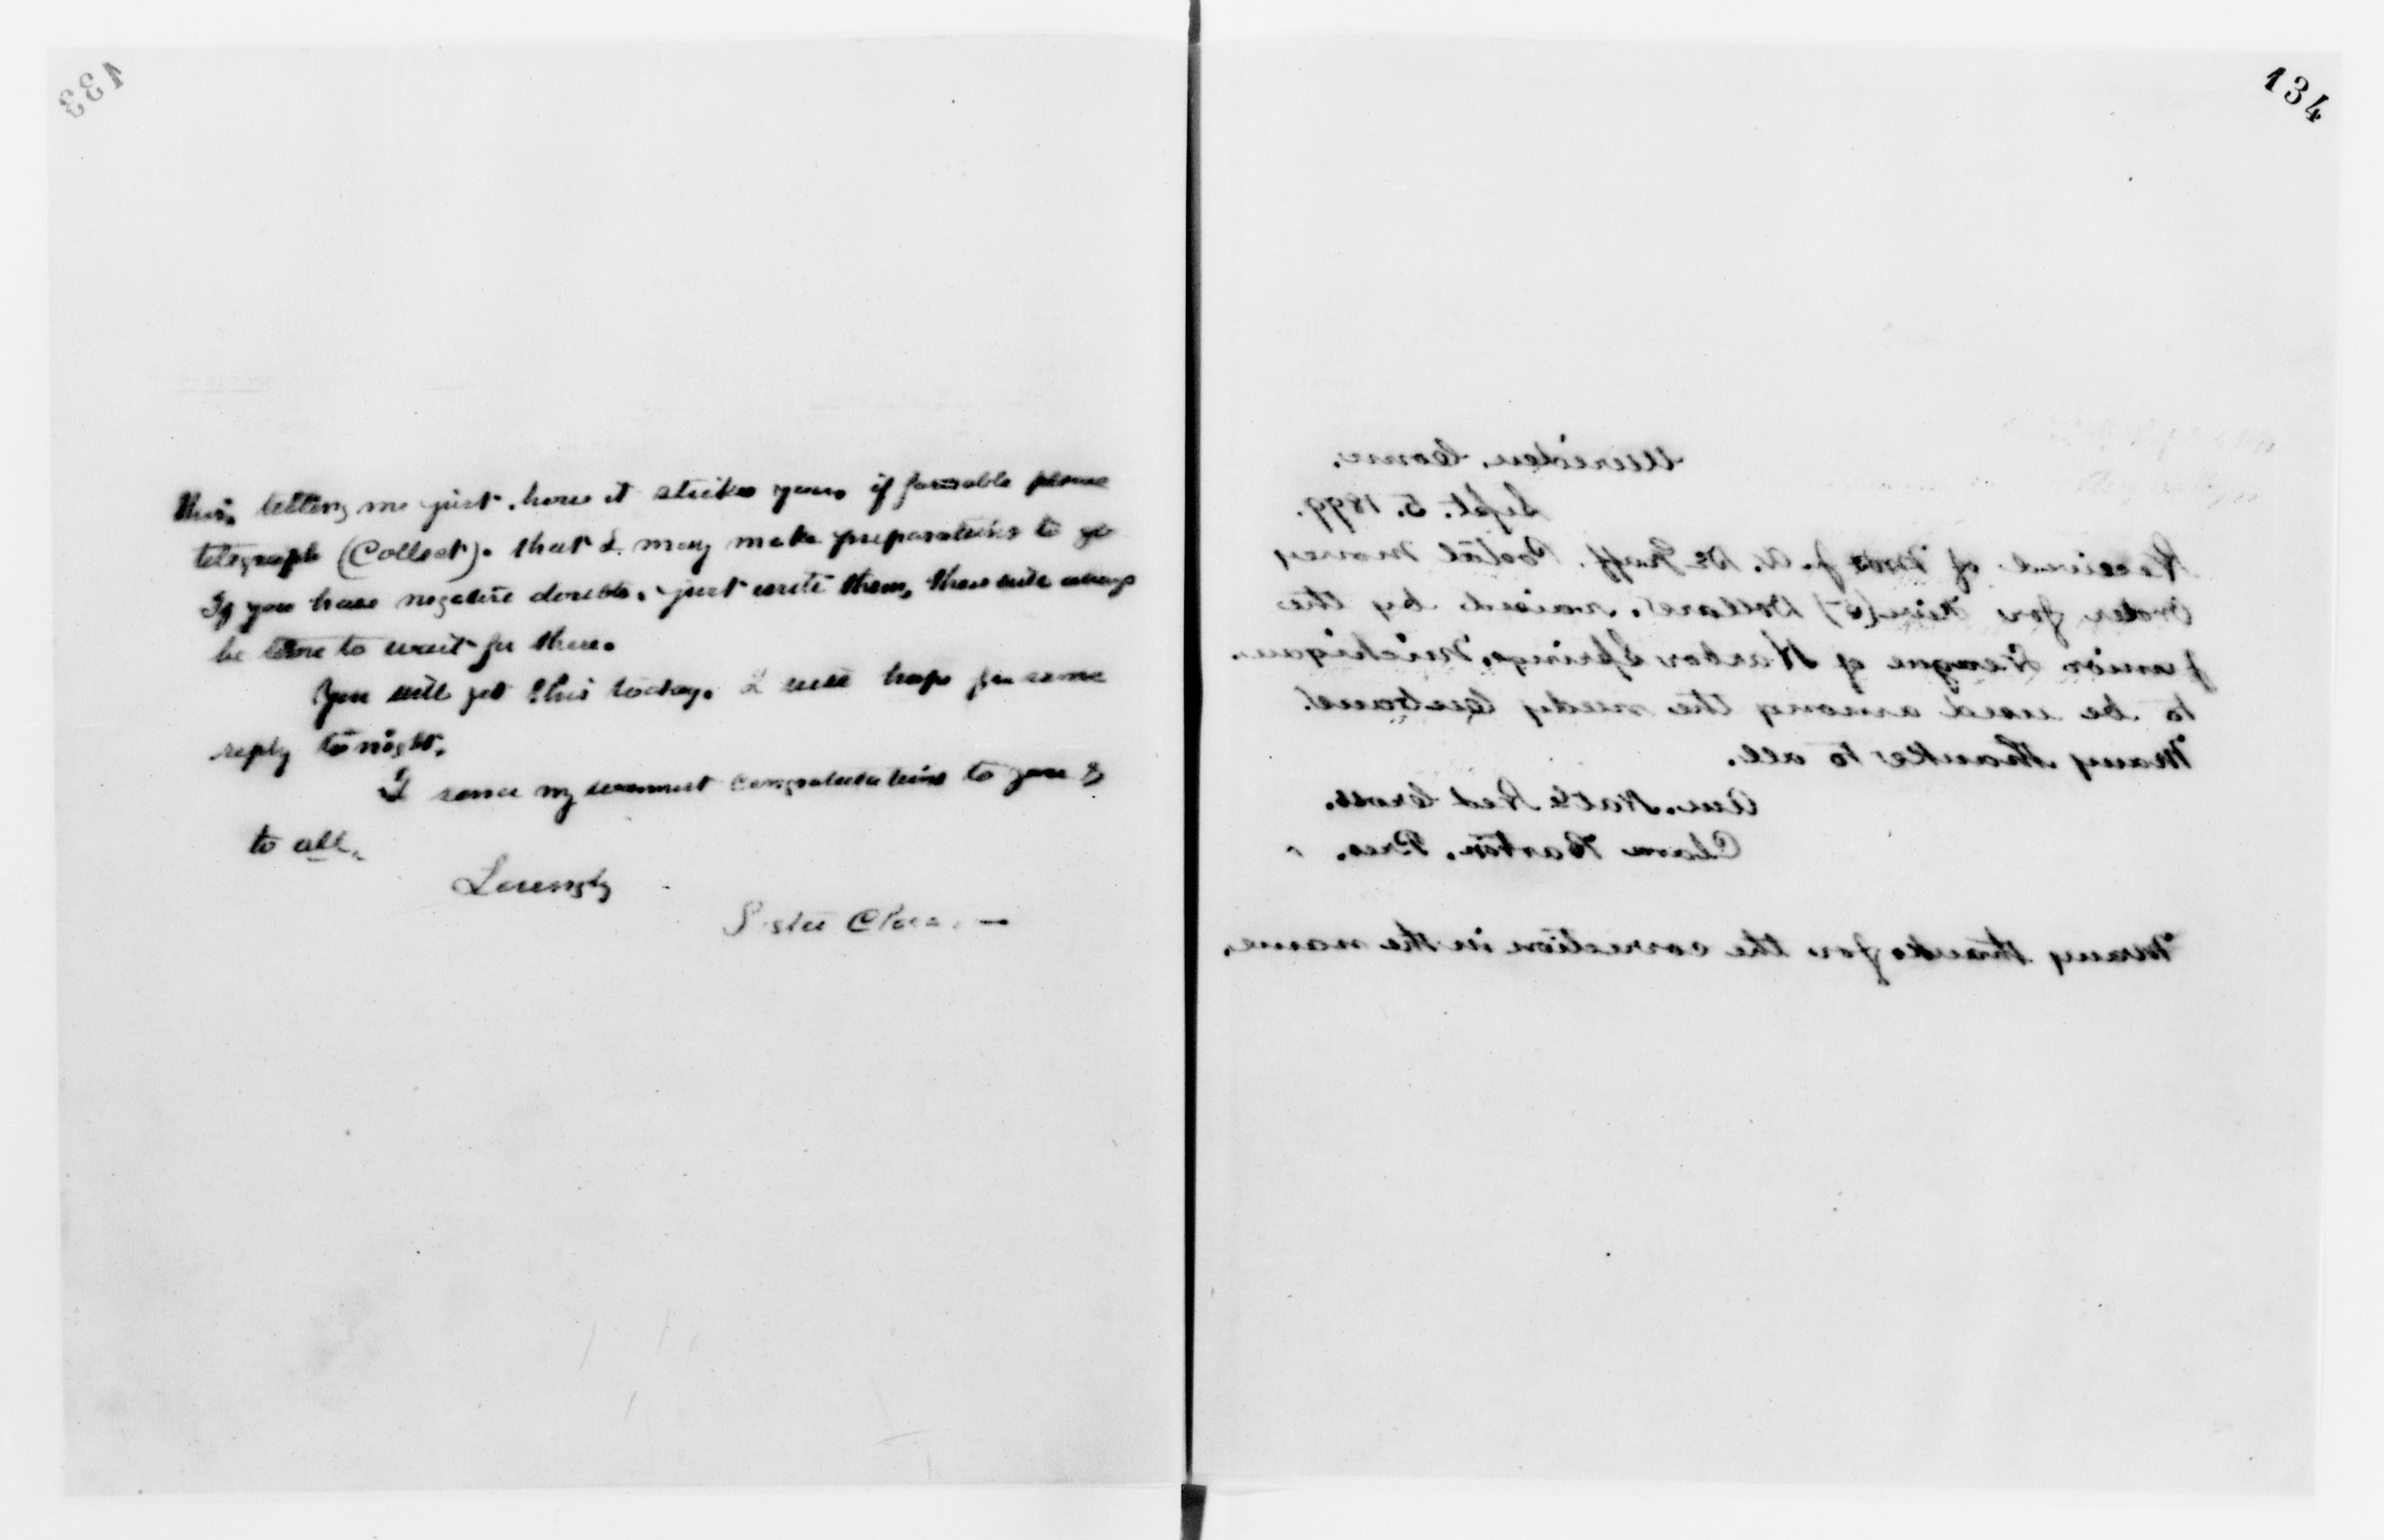 133
this, telling me just how it strikes you, if favorable please
telegraph (Collect). that I may make preparations to go
If you have negative doubts, just write them, there will always
be time to wait for them.
You will get this today. I will hope for some
reply tonight.
I send my warmest congratulations to you &
to all.
Lovingly
Sister Clara. —
134
Meriden, Conn.
Sept. 5. 1899.
Received of Mrs J. A. De Graff. Postal Money
Order for Five (5) Dollars, raised by the
Junior League of Harbor Springs, Michigan.
to be used among the needy Cubans.
Many thanks to all.
Am. Natl. Red Cross.
Clara Barton, Pres.
Many thanks for the correction in the name.